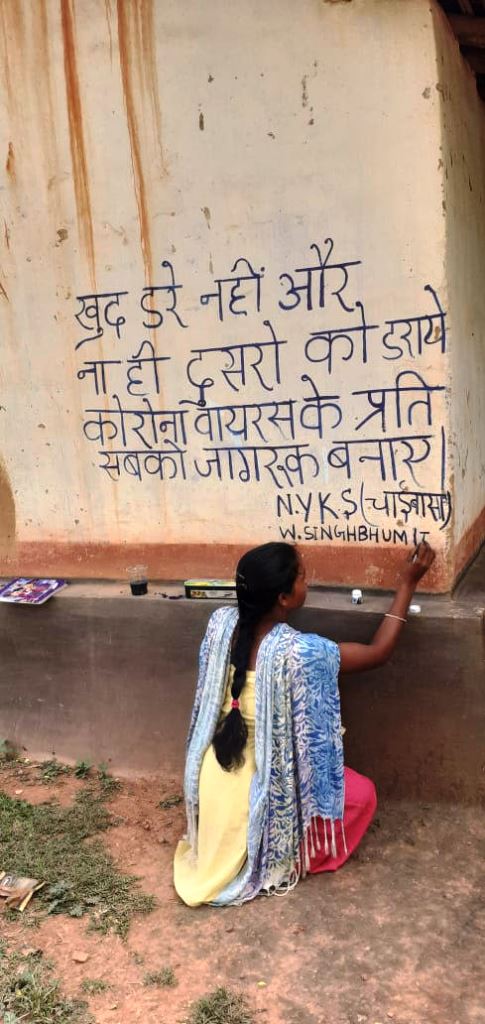 खुद डरे नहीं और
ना ही दुसरो को डराये
कोरोना वायरस के प्रति
सबको जागरूक बनाए।
N.Y.K.S (चाईबासा)
W. SINGHBHUM IT